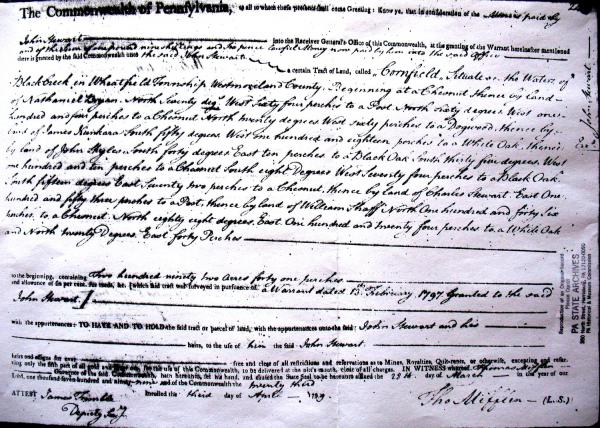 The Commonwealth of Pennsylvania, to all to whom these presents shall come Greeting: Know ye, that in consideration of the Monies paid by
John Stewart into the Receiver General's Office of this Commonwealth, at the granting of the Warrant hereinafter mentioned
and of the sum of four pound nine shillings and six pence lawful Money now paid by him into the said Office
there is granted by the said Commonwealth unto the said John Stewart a certain Tract of Land, called "Cornfield, Situate on the Waters of
Black Creek in Wheatfield Township Westmoreland County. Beginning at a Chesnut thence by land
of Nathaniel Bryan North Seventy deg West Sixty four perches to a Post North sixty degrees West one
hundred and four perches to a Chesnut North twenty degrees West Sixty perches to a Dogwood thence by
land of James South fifty degrees West One hundred and eighteen perches to a White Oak, thence
by land of John South forty degrees East ten perches to a Black Oak South thirty five degrees West
one hundred and ten perches to a Chesnut South eight Degrees West Seventy four perches to a Black Oak
South fifteen degrees East Seventy two perches to a Chesnut, thence by land of Charles Stewart East One
hundred and fifty three perches to a Post, thence by land of William North One hundred and forty Six
perches, to a Chesnut North eighty eight degrees East One hundred and twenty four perches to a White Oak
and North twenty Degrees East forty Perches
to the beginning, containing Two hundred ninety two acres forty one perches
and allowance of six per cent. for roads, &c. (which said tract was surveyed in pursuance of a Warrant dated 13th February 1797 Granted to the said
John Stewart )
with the appurtenances: TO HAVE AND TO HOLD the said tract or parcel of land, with the appurtenances unto the said John Stewart and his
heirs, to the use of him the said John Stewart
heirs and assigns for ever, free and clear of all restrictions and reservations as to Mines, Royalties, Quit-rents, or otherwise, excepting and reserving
only the fifth part of all gold and silver ore, for the use of this Commonwealth, to be delivered at the pit's mouth, clear of all charges. IN WITNESS whereof, Thomas Mifflin
Governor of the said Commonwealth, hath hereunto set his hand, and caused the State Seal to be hereunto affixed the 23d day of March in the year of our
Lord, one thousand seven hundred and ninety nine and of the Commonwealth the twenty third
ATTEST James Trimble Enrolled the third day of April 1799
Deputy Secy. Tho Mifflin (L.S.)
John Stewart
PA STATE ARCHIVES